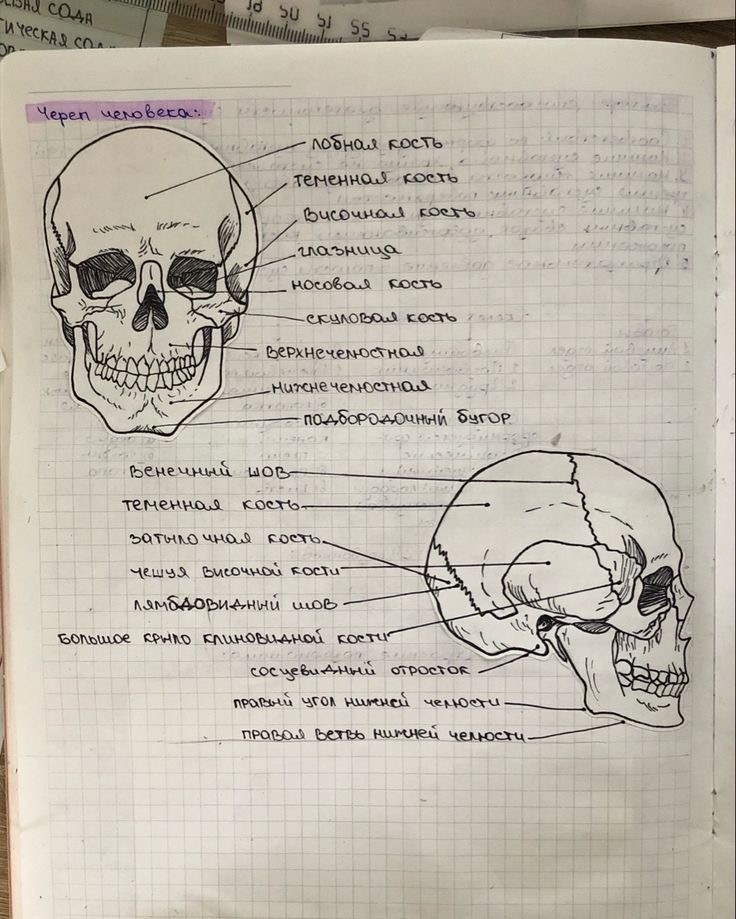 СОДА
ТИЧЕСКАЯ СОД
50 51 55
Череп человека:
лобная кость
теменная кость
височная кость
глазница
носовая кость
скуловая кость
верхнечелюстная
нижнечелюстная
подбородочный бугор
венечный шов
теменная кость
затылочная кость
чешуя височной кости
лямбдовидный шов
большое крыло клиновидной кости
сосцевидный отросток
правый угол нижней челюсти
правая ветвь нижней челюсти